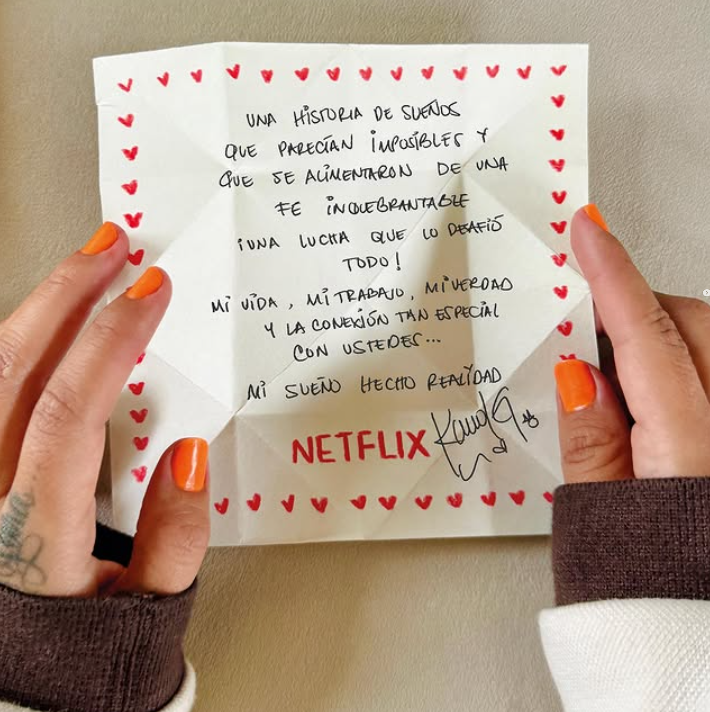 UNA HISTORIA DE SUEÑOS
QUE PARECÍAN IMPOSIBLES Y
QUE SE ALIMENTARON DE UNA
FE INQUEBRANTABLE
¡UNA LUCHA QUE LO DEAFIÓ
TODO!
MI VIDA, MI TRABAJO, MI VERDAD
Y LA CONEXIÓN TAN ESPECIAL
CON USTEDES...
MI SUEÑO HECHO REALIDAD
NETFLIX